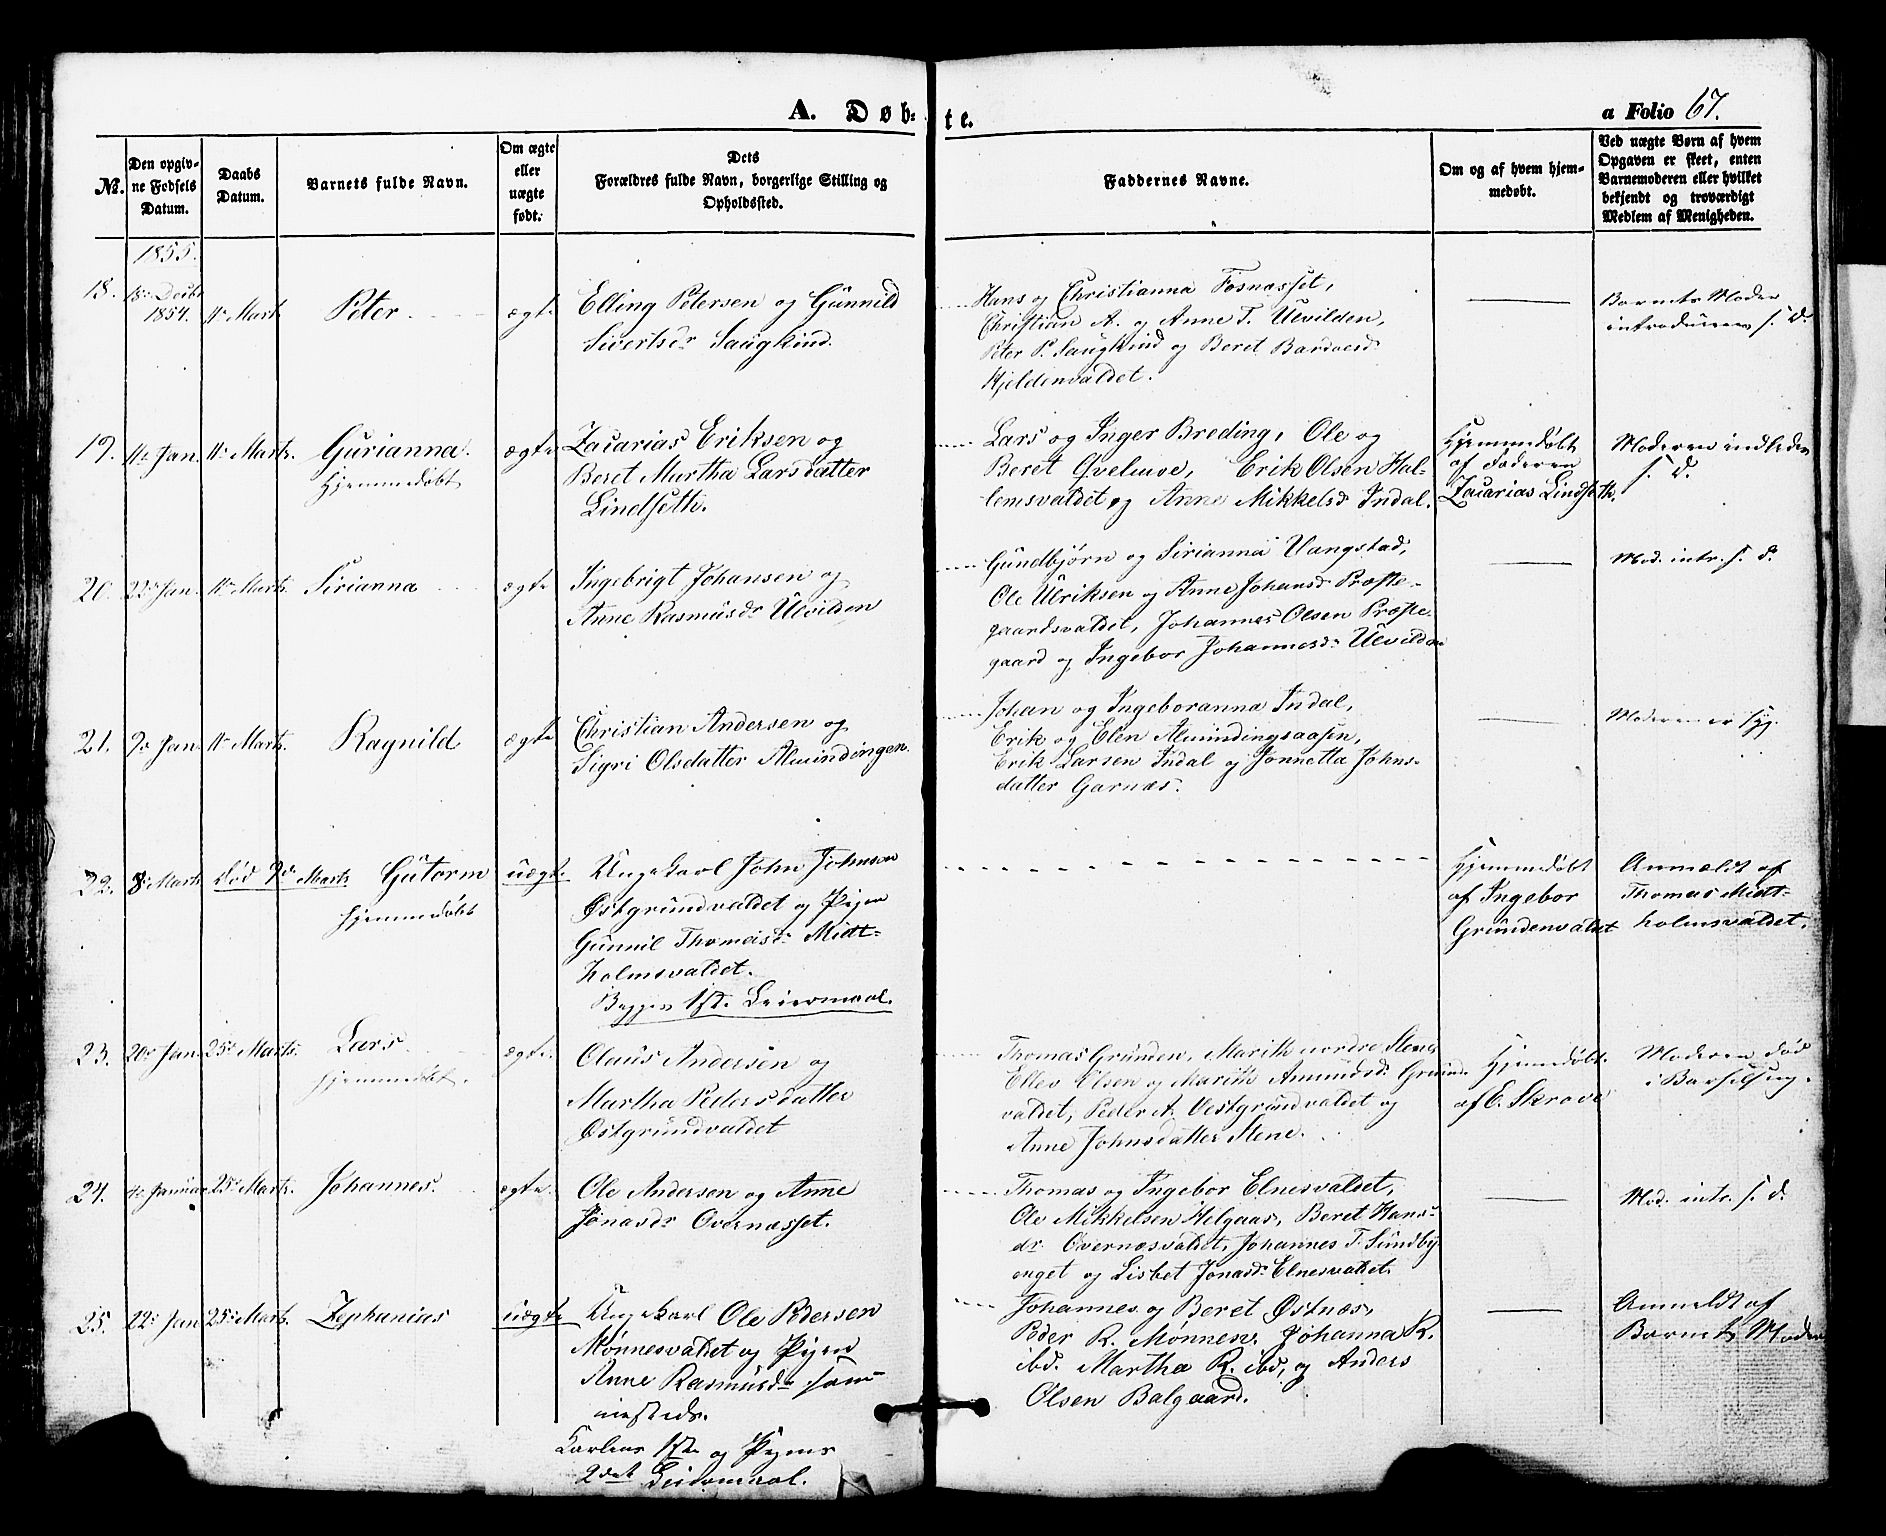 A. Døb-te.
a Folio 67.
No.
Den opgivne Fødsels Datum.
Daabs Datum.
Barnets fulde Navn.
Om ægte eller uægte født.
Dets Forældres fulde Navn, borgerlige Stilling og Opholdssted.
Faddernes Navne.
Om og af hvem hjemmedøbt.
Ved uægte Børn af hvem Opgaven er skeet, enten Barnemoderen eller hvilket bekjendt og troværdigt Medlem af Menigheden.
1855.
18. 18de Decbr 1854. 11te Marts Peter ægte
Elling Petersen og Gunnild
Sivertsdr Saugkind.
Hans og Christianna Fosnæsset,
Christian A. og Anne T. Ulvilden,
Peter P. Saugkind og Beret Bardoesd.
Kjeldenvaldet.
Barnets Moder
introduceres s. D.
19. 11te Jan. 11te Marts. Gurianna. ægte
Hjemmedøbt
Zacarias Eriksen og
Beret Martha Larsdatter
Lindseth.
Lars og Inger Breding, Ole og
Beret Øvelmoe, Erik Olsen Hal-
lemsvaldet og Anne Mikkelsd Indal.
Hjemmedøbt
af Faderen
Zacarias Lindseth.
Moderen indleder
s. D.
20. 22de Jan. 11te Marts. Sirianna ægte
Ingebrigt Johansen og
Anne Rasmusdr Ulvilden
Gundbjørn og Sirianna Vangstad,
Ole Ulriksen og Anne Johansd Præste-
gaardsvaldet, Johannes Olsen Præste-
gaard og Ingebor Johannesdr Ulvilden
Mod. intr. s. D.
21. 9de Jan. 11te Marts. Ragnild ægte
Christian Andersen og
Sigri Olsdatter Almindingen.
Johan og Ingeboranna Indal,
Erik og Elen Almindingsaasen,
Erik Larsen Indal og Jonnetta Johns-
datter Garnæs.
Moderen er syg.
22. 8de Marts død 9de Marts Gutorm uægte
hjemmedøbt
Ungekarl John Johnsen
Østgrundvaldet og Pigen
Gunnil Thomæsdr Midt-
holmsvaldet.
Begges 1ste Leiermaal.
Hjemmedøbt
af Ingebor
Grundenvaldet
Anmeldt af
Thomas Midt-
holmsvaldet.
23. 20de Jan. 25de Marts. Lars ægte.
hjemmedøbt.
Olaus Andersen og
Martha Pedersdatter
Østgrundvaldet
Thomas Grunden, Marith nordre Stene,
Ellev Olsen og Marith Amundsd. Grund-
valdet, Peder A. Vestgrundvaldet og
Anne Johnsdatter Stene.
Hjemmedøbt.
af E. Skrove
Moderen død
i Barselseng.
24. Januar 25de Marts. Johannes. ægte.
Ole Andersen og Anne
Jonasdr Overnæsset.
Thomas og Ingebor Elnesvaldet,
Ole Mikkelsen Helgaas, Beret Hans-
dr. Overnæsvaldet, Johannes T. Sundby-
enget og Lisbet Jonasd. Elnesvaldet.
Mod. intr. s. d.
25. 22de Jan 25de Marts. Zephanias uægte
Ungekarl Ole Pedersen
Mønnesvaldet og Pigen
Anne Rasmusdr sam-
mesteds.
Karlens 1ste og Pigens
2det Leiermaal.
Johannes og Beret Østnæs,
Peder R. Mønnes, Johanna R.
ibd. Martha R. ibd, og Anders
Olsen Balgaard.
Anmeldt af
Barnets Moder